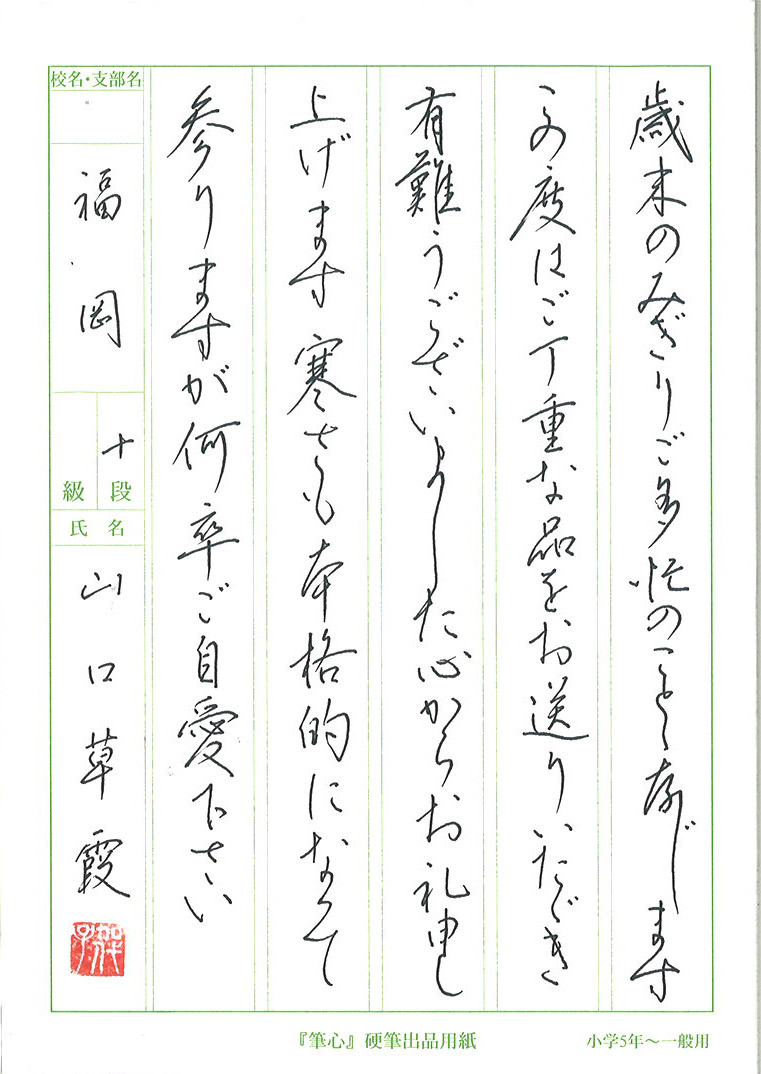 歳末のみぎりご多忙のことと存じます
この度はご丁重な品をお送りいただき
有難うございました心からお礼申し
上げます寒さも本格的になって
参りますが何卒ご自愛下さい
校名・支部名
福岡
十段
級
氏名
山口草霞
『筆心』硬筆出品用紙
小学5年〜一般用